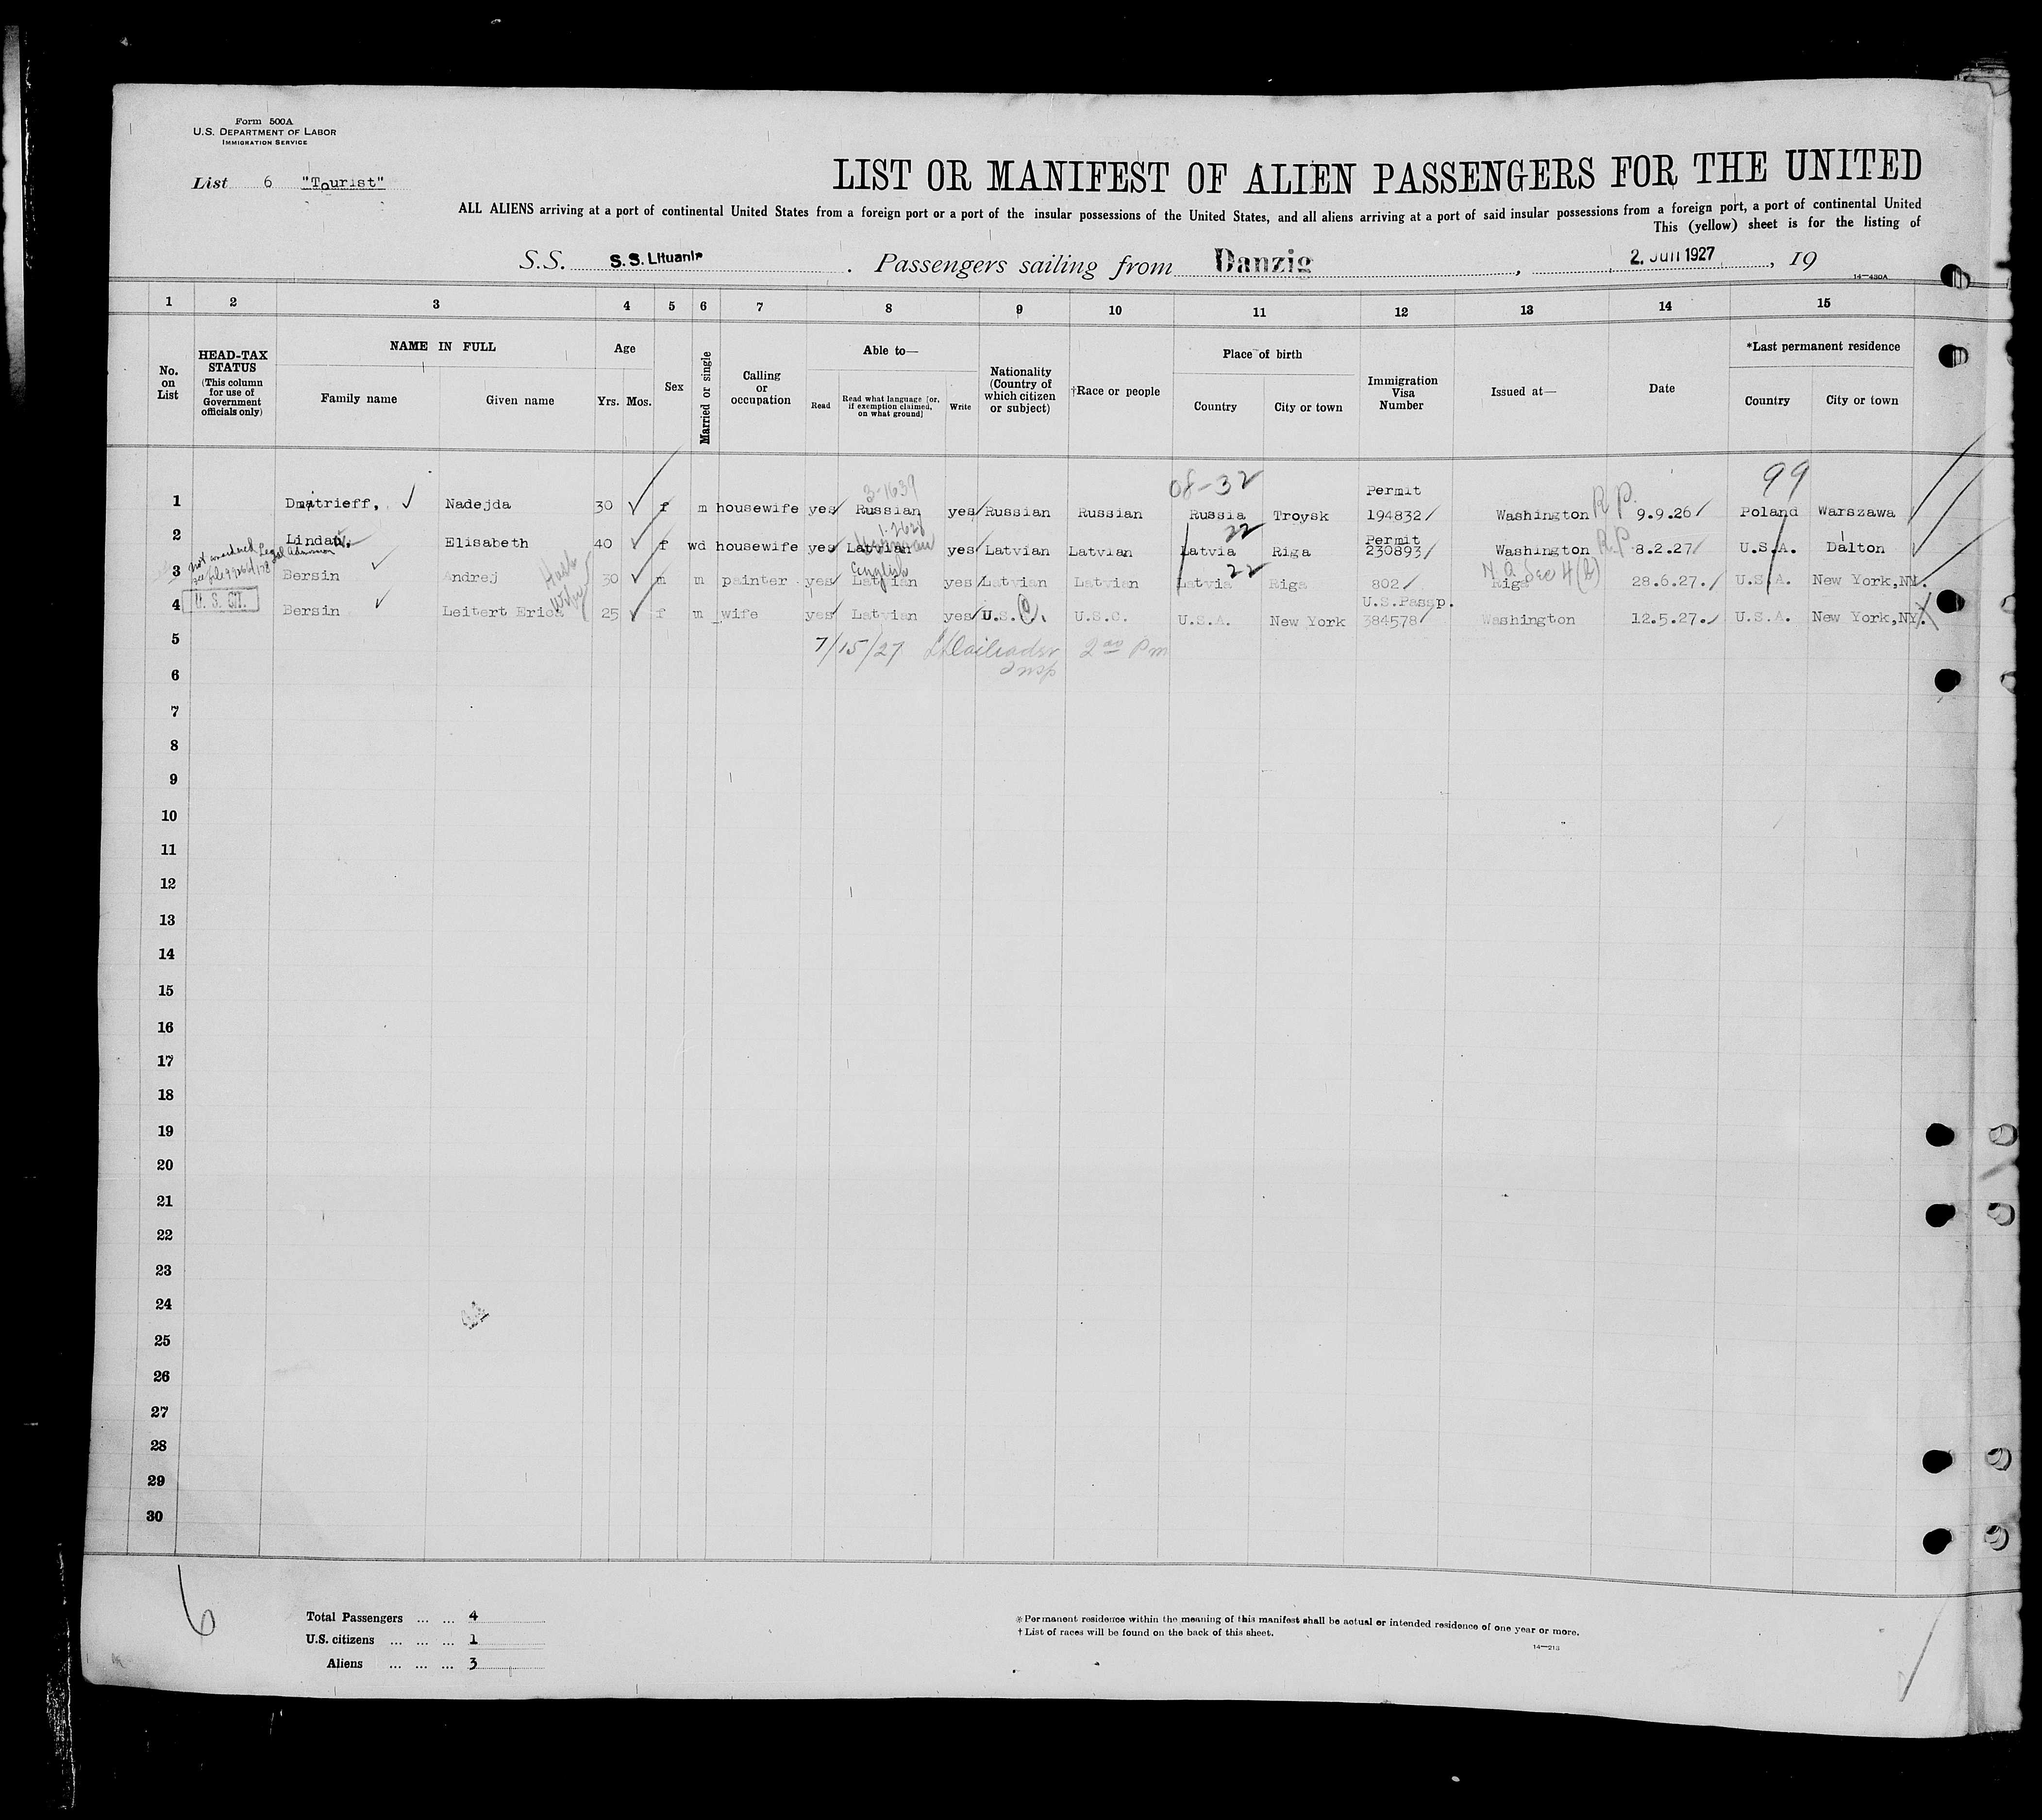 Form 500A
U.S. DEPARTMENT OF LABOR
IMMIGRATION SERVICE
List 6 "Tourist"
LIST OR MANIFEST OF ALIEN PASSENGERS FOR THE UNITED
ALL ALIENS arriving at a port of continental United States from a foreign port or a port of the insular possessions of the United States, and all aliens arriving at a port of said insular possessions from a foreign port, a port of continental United
This (yellow) sheet is for the listing of
S.S. S.S. Lituania. Passengers sailing from Danzig, 2. Juli 1927, 19
14—430A
1 2 3 4 5 6 7 8 9 10 11 12 13 14 15
No. on List
HEAD-TAX STATUS (This column for use of Government officials only)
NAME IN FULL
Family name Given name
Age
Yrs. Mos.
Sex
Married or single
Calling or occupation
Able to—
Read Read what language [or, if exemption claimed, on what ground] Write
Nationality (Country of which citizen or subject)
†Race or people
Place of birth
Country City or town
Immigration Visa Number
Issued at—
Date
*Last permanent residence
Country City or town
3-1639 08-32 99
Permit
1 Dmitrieff, Nadejda 30 f m housewife yes Russian yes Russian Russian Russia Troysk 194832 Washington RP 9.9.26 Poland Warszawa
22 Permit
2 Lindau, Elisabeth 40 f wd housewife yes Latvian yes Latvian Latvian Latvia Riga 230893 Washington RP 8.2.27 U.S.A. Dalton
English 22
3 Bersin Andrej Husb 30 m m painter yes Latvian yes Latvian Latvian Latvia Riga 802 Riga N.Q. Sec 4 (B) 28.6.27. U.S.A. New York, NY.
U.S.Passp.
U. S. CIT.
4 Bersin Leitert Erica Wife 25 f m wife yes Latvian yes U.S.C. U.S.C. U.S.A. New York 384578 Washington 12.5.27. U.S.A. New York, NY.
5 7/15/27 2 00 Pm
Insp
6
7
8
9
10
11
12
13
14
15
16
17
18
19
20
21
22
23
24
25
26
27
28
29
30
6
Total Passengers ... ... 4
U.S. citizens ... ... ... 1
Aliens ... ... ... 3
*Permanent residence within the meaning of this manifest shall be actual or intended residence of one year or more.
†List of races will be found on the back of this sheet.
14—213